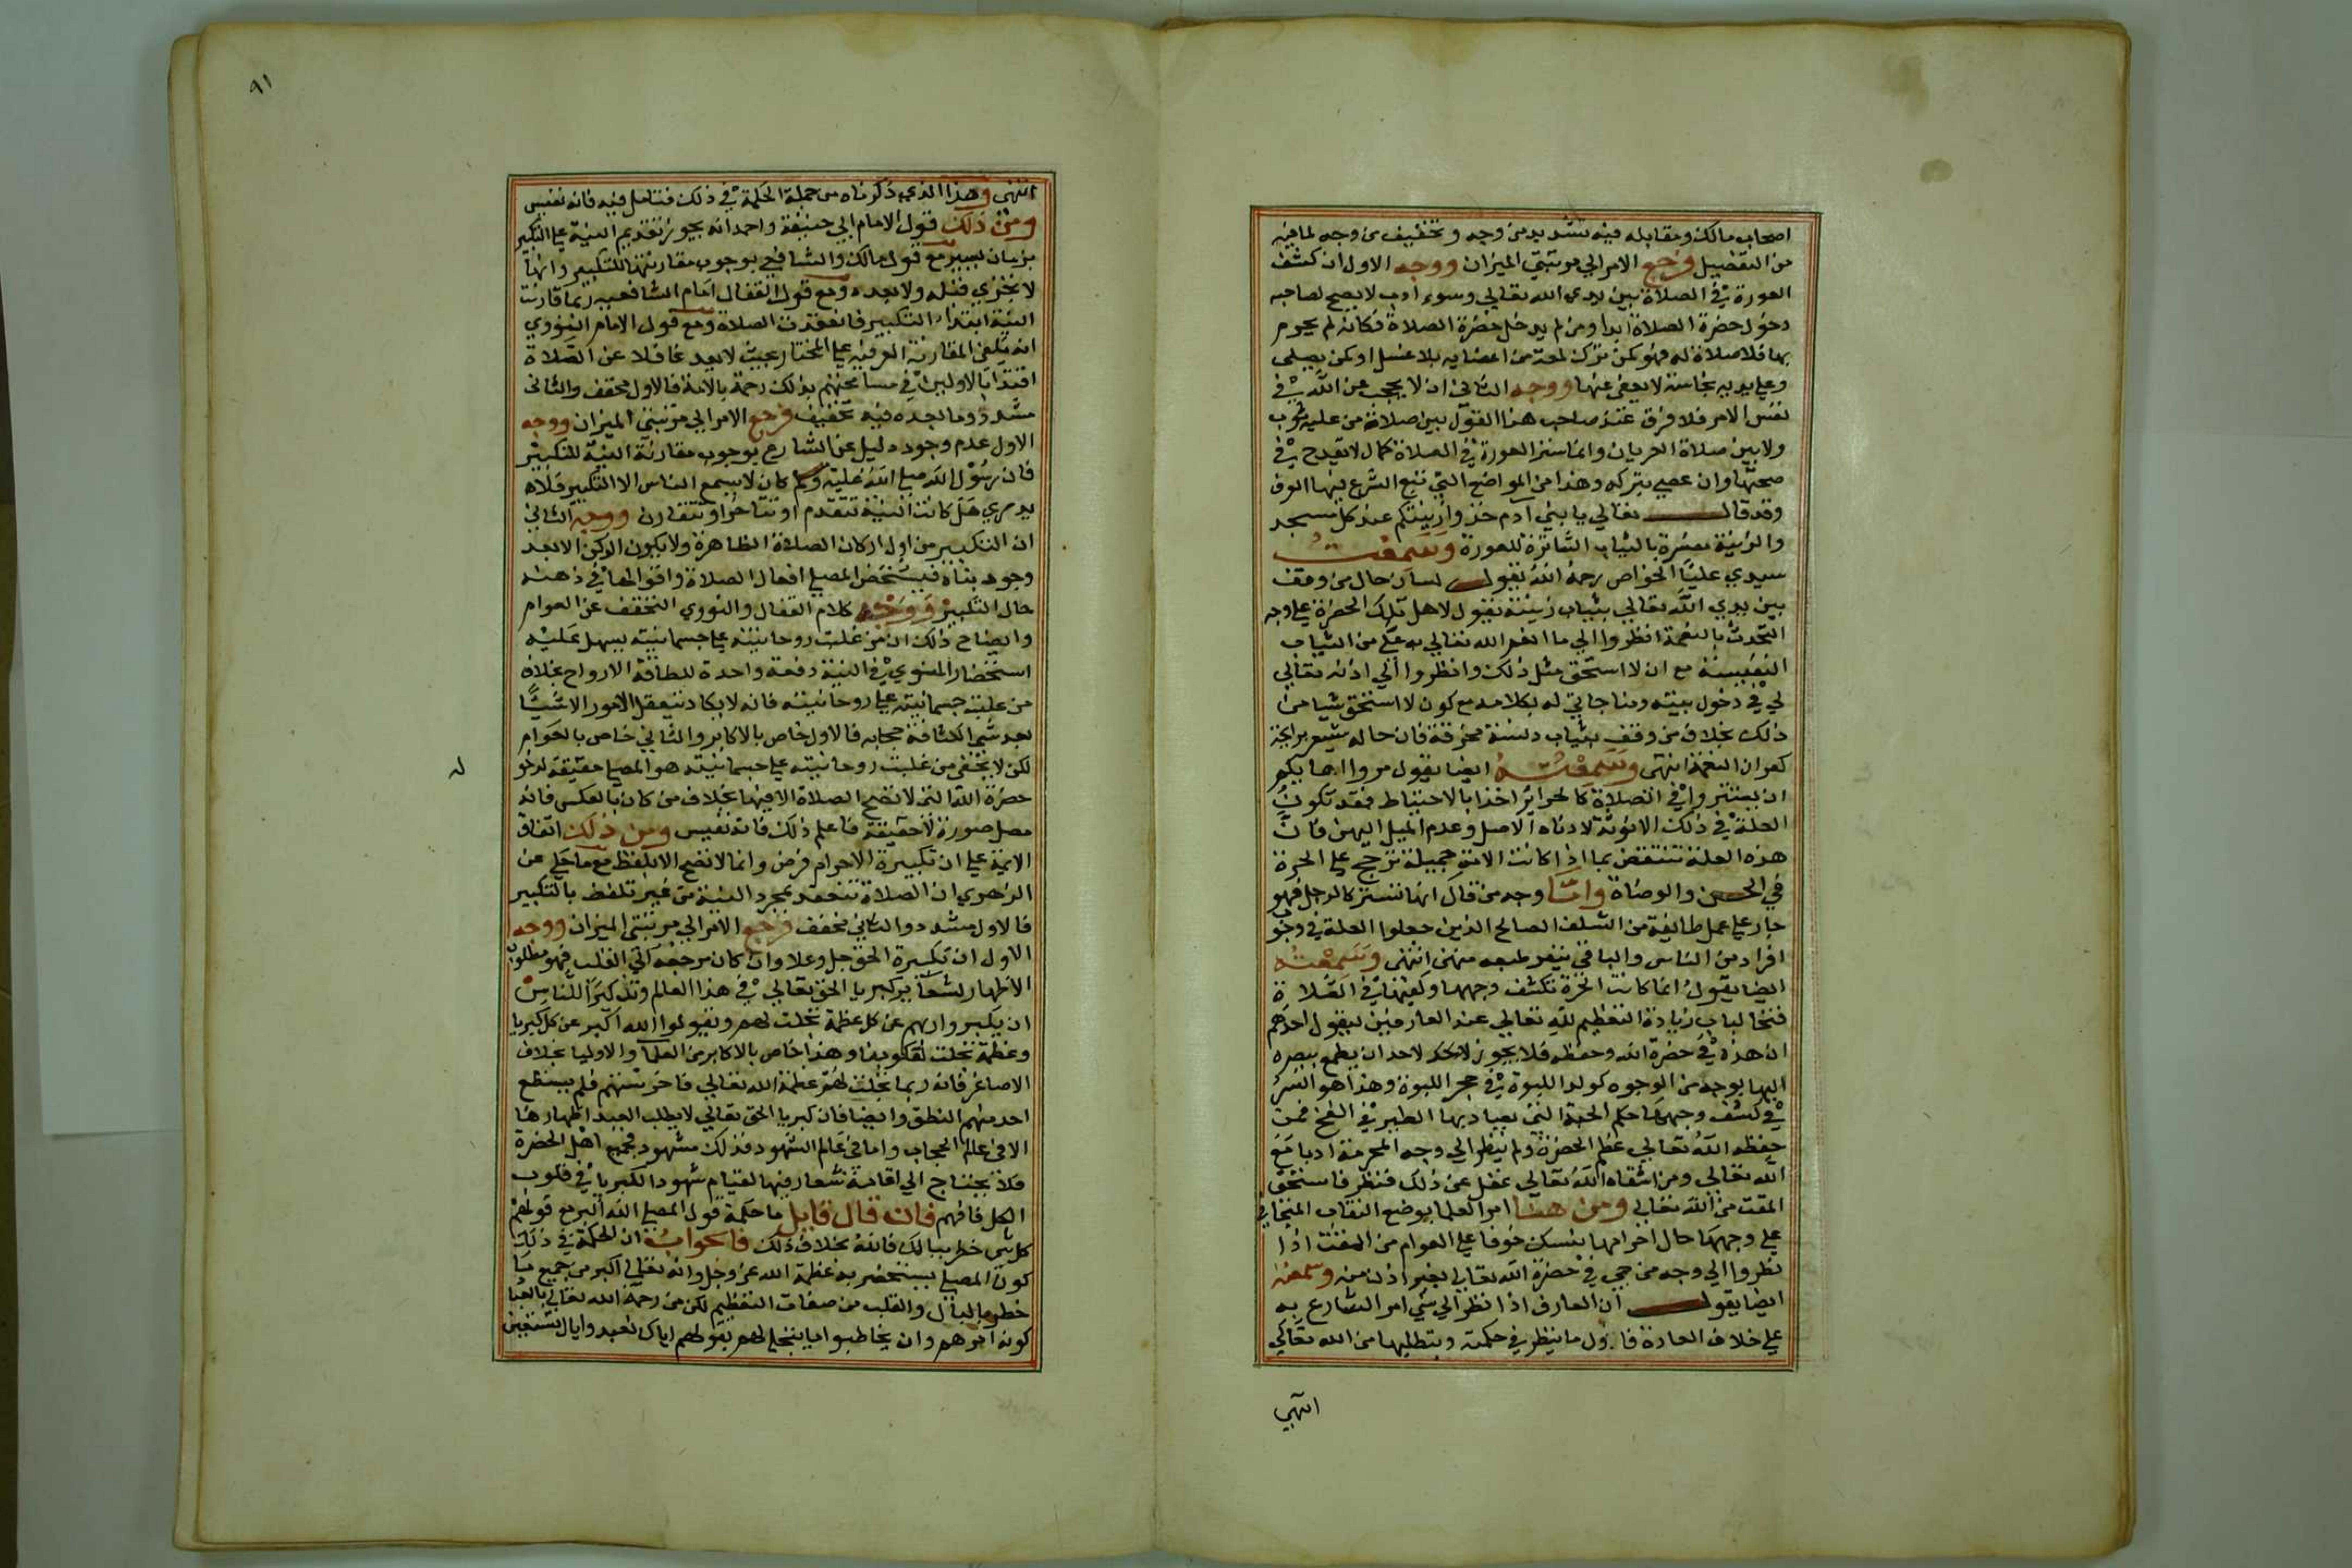 اصحاب مالك ومقابله فيه تشديد من وجه وتخفيف من وجه لما فيه
من التفصيل فرجع الامر الي مرتبتي الميزان ووجه الاول ان كشف
العورة في الصلاة بين يدي الله تعالي وسوء ادب لا يصح لصاحبه
دخول حضرة الصلاة ابدا ومن لم يدخل حضرة الصلاة فكانه لم يحرم
بها فلا صلاة له فهو كمن ترك لمعة من اعضايه بلا غسل او كمن يصلي
وعلي بدنه نجاسة لا يعفي عنها ووجه الثاني ان لا يحجب عن الله في
نفس الامر فلا فرق عند صاحب هذا القول بين صلاة من عليه ثوب
ولا بين صلاة العريان وانما ستر العورة في الصلاة كمال لا يقدح في
صحتها وان عصي بتركه وهذا من المواضع التي تتبع الشرع فيها العرف
وقد قال تعالي يا بني آدم خذوا زينتكم عند كل مسجد
والزينة مفسرة بالثياب الساترة للعورة وسمعت
سيدي عليا الخواص رحمه الله يقول لسان حال من وقف
بين يدي الله تعالي بثياب زينته يقول لاهل تلك الحضرة علي وجه
التحدث بالنعمة انظروا الي ما انعم الله تعالي به علي من الثياب
النفيسة مع ان لا استحق مثل ذلك وانظروا الي اذنه تعالي
لي في دخول بيته ومناجاتي له بكلامه مع كون لا استحق شيا من
ذلك بخلاف من وقف بثياب دنسة مخرقة فان حاله يشعر برايحة
كفران النعمة انتهي وسمعته ايضا يقول مروا اماكم
ان يستتروا في الصلاة كالحراير اخذا بالاحتياط فقد تكون
العلة في ذلك الانوثة لا دناة الاصل وعدم الميل اليهن فان
هذه العلة تنتقض بما اذا كانت الامة جميلة ترجح علي الحرة
في الحسن والوضاة واما وجه من قال انها تستتر كالرجل فهو
جار علي عمل طايفة من السلف الصالح الذين جعلوا العلة في وجو
افراد من الناس والباقي ينفر طبعه منهن انتهي وسمعته
ايضا يقول انما كانت الحرة تكشف وجهها وكفيها في الصلاة
فتحا لباب زيادة التعظيم لله تعالي عند العارفين ليقول احدهم
ان هذه في حضرة الله وحفظه فلا يجوز لاحد ان يطمح ببصره
اليها بوجه من الوجوه كولد اللبوة في حجر اللبوة وهذا هو السر
في كشف وجهها حكم الحبة التي يصاد بها الطير في الفخ فمن
حفظه الله تعالي عظم الحضرة ولم ينظر الي وجه المحرمة ادبا مع
الله تعالي ومن اشقاه الله تعالي غفل عن ذلك فنظر فاستحق
المقت من الله تعالي ومن هنا امر العلما بوضع النقاب المتجافي
علي وجهها حال احرامها بنسك خوفا علي العوام من المقت اذا
نظروا الي وجه من هي في حضرة الله تعالي بغير اذن منه وسمعته
ايضا يقول ان العارف اذا نظر الي شي امر الشارع به
علي خلاف العادة فاول ما ينظر في حكمته ويتطلبها من الله تعالي
انتهي
٩١
انتهي وهذا الذي ذكرناه من جملة الحكمة في ذلك فتامل فيه فانه نفيس
ومن ذلك قول الامام ابي حنيفة واحمد انه يجوز تقديم النية علي التكبير
بزمان يسير مع قول مالك والشافعي بوجوب مقارنتها للتكبير وانها
لا تجزي قبله ولا بعده ومع قول القفال امام الشافعية ربما قارنت
النية ابتداء التكبير فانعقدت الصلاة ومع قول الامام النووي
انه يكفي المقارنة العرفية علي المختار بحيث لا يعد غافلا عن الصلاة
اقتداء بالاولين في مسامحتهم بذلك رحمة بالامة فالاول مخفف والثاني
مشدد وما بعده فيه تخفيف فرجع الامر الي مرتبتي الميزان ووجه
الاول عدم وجود دليل عن الشارع بوجوب مقارنة النية للتكبير
فان رسول الله صلي الله عليه وسلم كان لا يسمع الناس الا التكبير فلا
يدري هل كانت النية تتقدم او تتاخر او تتقارن ووجه الثاني
ان التكبير من اول اركان الصلاة الظاهرة ولا يكون الركن الا بعد
وجود بناه فيستحضر المصلي افعال الصلاة واقوالها في ذهنه
حال التكبير ووجه كلام القفال والنووي التخفيف عن العوام
وايضاح ذلك ان من غلبت روحانيته علي جسمانيته يسهل عليه
استحضار المنوي في النية دفعة واحدة للطافة الارواح بخلاف
من غلبت جسمانيته علي روحانيته فانه لا يكاد يتعقل الامور الا شيئا
بعد شي لكثافة حجابه فالاول خاص بالاكابر والثاني خاص بالعوام
لكن لا يخفي من غلبت روحانيته علي جسمانيته هو المصلي حقيقة لدخو
له
حضرة الله التي لا تصح الصلاة الا فيها بخلاف من كان بالعكس فانه
مصل صورة لا حقيقة فاعلم ذلك فانه نفيس ومن ذلك اتفاق
الايمة علي ان تكبيرة الاحرام فرض وانها لا تصح الا بلفظ مع ما حكي عن
الزهري ان الصلاة تنعقد بمجرد النية من غير تلفظ بالتكبير
فالاول مشدد والثاني مخفف فرجع الامر الي مرتبتي الميزان ووجه
الاول ان تكبيرة الحق جل وعلا وان كان مرجعه الي القلب فهو مطلوب
الاظهار لشعاير كبريا الحق تعالي في هذا العالم وتذكيرا للناس
ان يكبروا ربهم عن كل عظمة تجلت لهم ويقولوا الله اكبر عن كل كبريا
وعظمة تجلت لقلوبنا وهذا خاص بالاكابر من العلما والاوليا بخلاف
الاصاغر فانه ربما تجلت لهم عظمة الله تعالي فاخرستهم فلم يستطع
احد منهم النطق وايضا فان كبريا الحق تعالي لا يطلب العبد اظهارها
الا في عالم الحجاب واما في عالم الشهود فذلك مشهود لجميع اهل الحضرة
فلا يحتاج الي اقامة شعار فيها لقيام شهود الكبريا في قلوب
الكل فافهم فان قال قايل ما حكمة قول المصلي الله اكبر مع قولهم
كل شي خطر ببالك فالله بخلاف ذلك فالجواب ان الحكمة في ذلك
كون المصلي يستحضر به عظمة الله عز وجل وانه تعالي اكبر من جميع ما
خطر بالبال والقلب من صفات التعظيم لكن من رحمة الله تعالي بالعبا
كونه امرهم وان يخاطبوا ما يتجلي لهم بقولهم اياك نعبد واياك نستعين